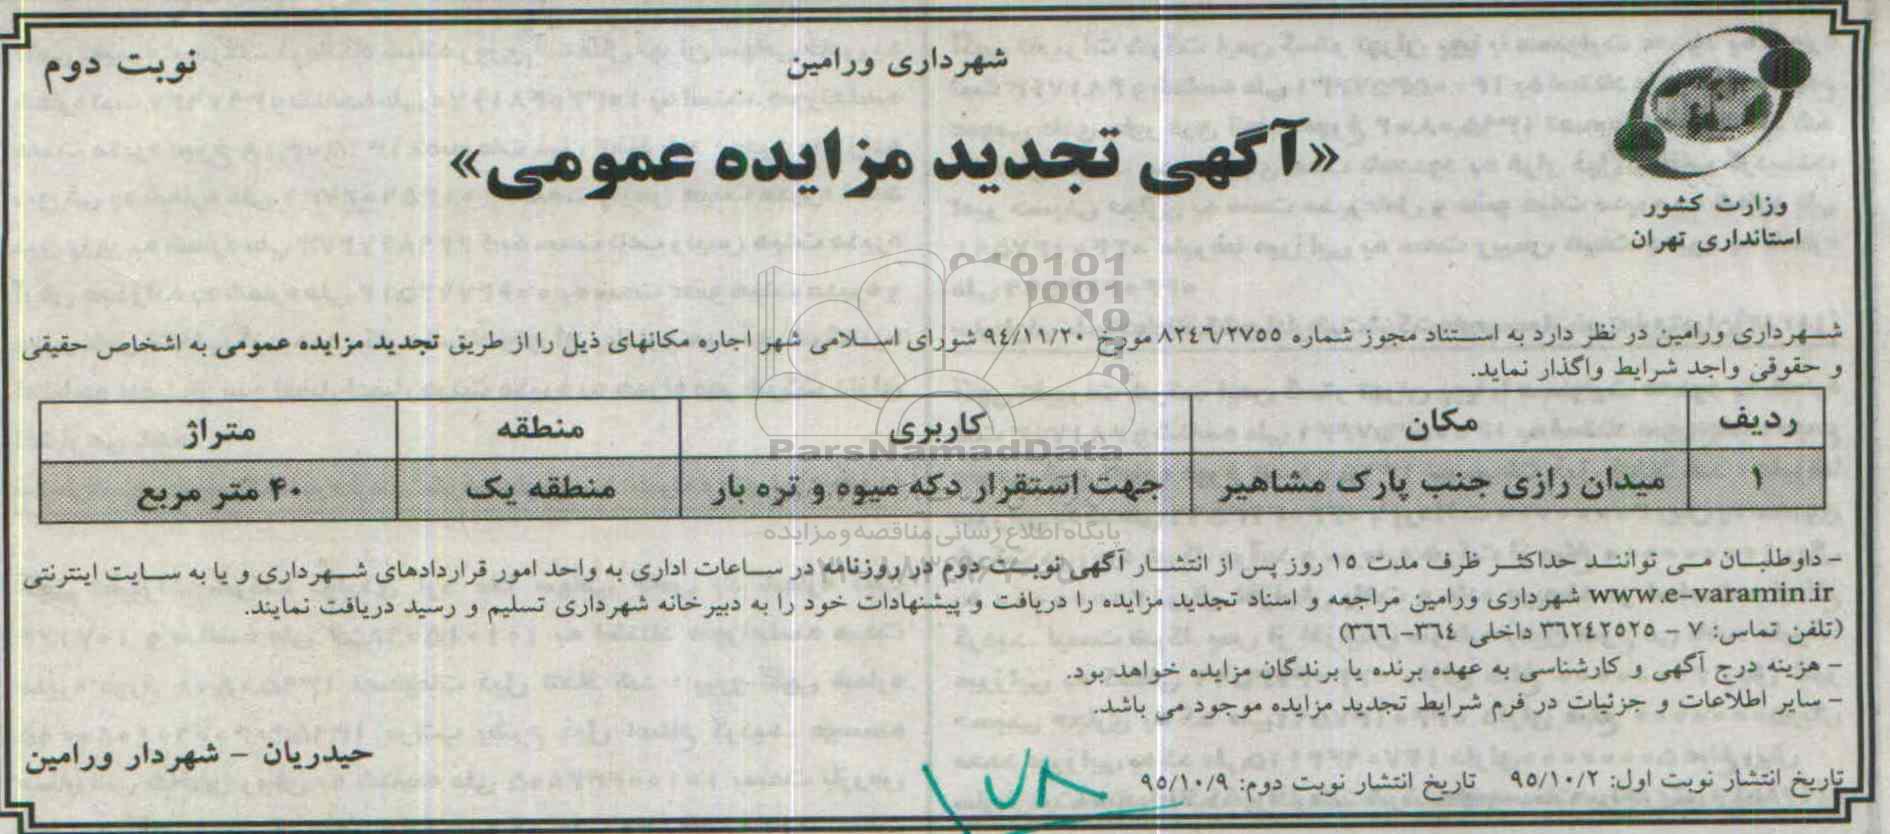 نوبت دوم
شهرداری ورامین
«آگهی تجدید مزایده عمومی»
وزارت کشور
استانداری تهران
شهرداری ورامین در نظر دارد به استناد مجوز شماره ۸۲٤٦/۲۷۵۵ مورخ ۹٤/۱۱/۲۰ شورای اسلامی شهر اجاره مکانهای ذیل را از طریق تجدید مزایده عمومی به اشخاص حقیقی
و حقوقی واجد شرایط واگذار نماید.
ردیف مکان کاربری منطقه متراژ
۱ میدان رازی جنب پارک مشاهیر جهت استقرار دکه میوه و تره بار منطقه یک ۴۰ متر مربع
ParsNamadData
پایگاه اطلاع رسانی مناقصه و مزایده
- داوطلبان می توانند حداکثر ظرف مدت ۱۵ روز پس از انتشار آگهی نوبت دوم در روزنامه در ساعات اداری به واحد امور قراردادهای شهرداری و یا به سایت اینترنتی
www.e-varamin.ir شهرداری ورامین مراجعه و اسناد تجدید مزایده را دریافت و پیشنهادات خود را به دبیرخانه شهرداری تسلیم و رسید دریافت نمایند.
(تلفن تماس: ۷ - ۳٦۲٤۲۵۲۵ داخلی ۳٦٤- ۳٦٦)
- هزینه درج آگهی و کارشناسی به عهده برنده یا برندگان مزایده خواهد بود.
- سایر اطلاعات و جزئیات در فرم شرایط تجدید مزایده موجود می باشد.
حیدریان - شهردار ورامین
تاریخ انتشار نوبت اول: ۹۵/۱۰/۲ تاریخ انتشار نوبت دوم: ۹۵/۱۰/۹
۱۷۸